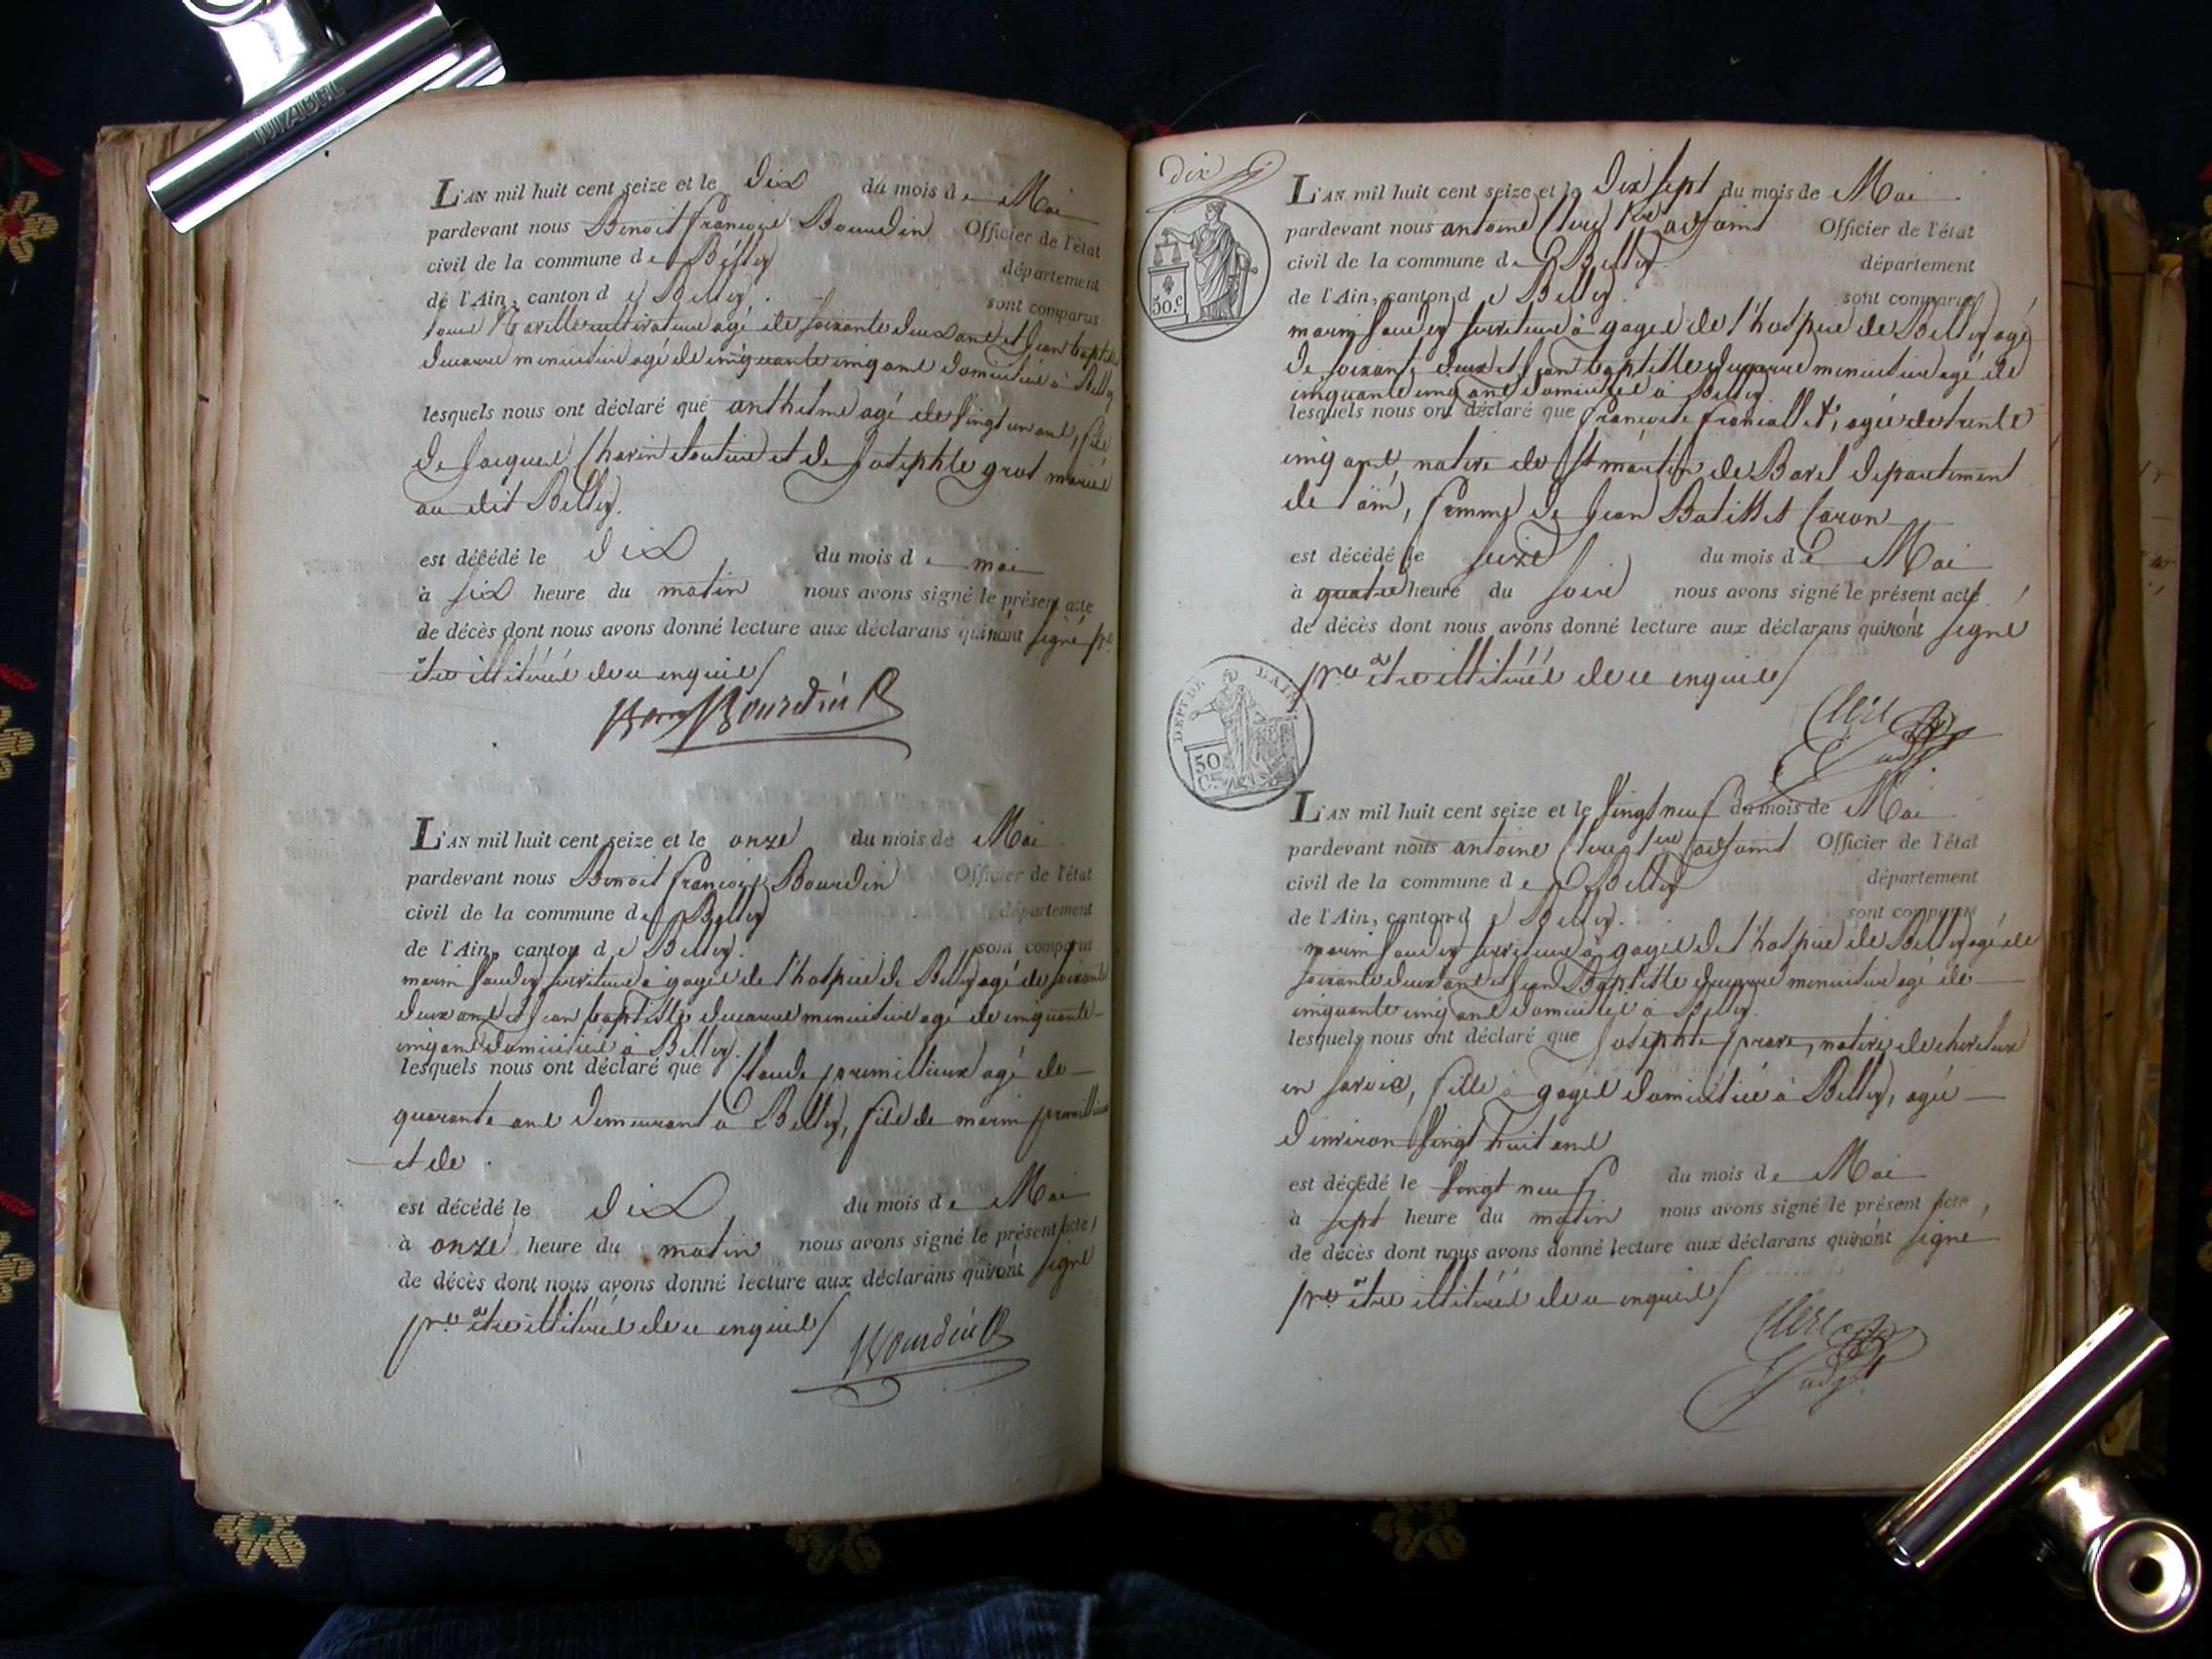 L'AN mil huit cent seize et le dix du mois de Mai
pardevant nous Benoit françois Bourdin Officier de l'état
civil de la commune de Belley département
de l'Ain, canton de Belley. sont comparus
cultivateur agé de soixante deux ans et Jean baptiste
ducarre menuisier agé de cinquante cinq ans domiciliés à Belley
lesquels nous ont déclaré que anthelme agé de vingt un ans, fils
de Jacques et de Josephte grot mariés
au dit Belley.
est décédé le dix du mois de mai
à six heure du matin nous avons signé le présent acte
de décès dont nous avons donné lecture aux déclarans qui n'ont signé pr
être illitérés de ce enquis
Bourdin
L'AN mil huit cent seize et le onze du mois de Mai
pardevant nous Benoit françois Bourdin Officier de l'état
civil de la commune de Belley département
de l'Ain, canton de Belley. sont comparus
marin serviteur à gages de l'hospice de Belley agé de soixante
deux ans et Jean baptiste ducarre menuisier agé de cinquante
cinq ans domiciliés à Belley.
lesquels nous ont déclaré que Claude primillieux agé de
quarante ans demeurant à Belley, fils de marin
et de
est décédé le dix du mois de Mai
à onze heure du matin nous avons signé le présent acte
de décès dont nous avons donné lecture aux déclarans qui n'ont signé
pr être illitérés de ce enquis
Bourdin
dix
L'AN mil huit cent seize et le dix sept du mois de Mai
pardevant nous antoine Clerc 1er adjoint Officier de l'état
civil de la commune de Belley département
de l'Ain, canton de Belley. sont comparus
marin serviteur à gages de l'hospice de Belley agé
de soixante deux et Jean baptiste ducarre menuisier agé de
cinquante cinq ans domiciliés à Belley
lesquels nous ont déclaré que françoise francallet, agée de trente
cinq ans, native de St martin de Bavel département
de l'ain, femme de Jean Batistet Caron
est décédé le seize du mois de Mai
à quatre heure du soir nous avons signé le présent acte
de décès dont nous avons donné lecture aux déclarans qui n'ont signé
pr être illitérés de ce enquis
Clerc
adjt
L'AN mil huit cent seize et le vingt neuf du mois de Mai
pardevant nous antoine Clerc 1er adjoint Officier de l'état
civil de la commune de Belley département
de l'Ain, canton de Belley. sont comparus
marin serviteur à gages de l'hospice de Belley agé de
soixante deux ans et Jean Baptiste ducarre menuisier agé de
cinquante cinq ans domiciliés à Belley.
lesquels nous ont déclaré que Josephte native de
en Savoie, fille à gages domiciliée à Belley, agée
d'environ vingt huit ans
est décédé le vingt neuf du mois de Mai
à sept heure du matin nous avons signé le présent acte,
de décès dont nous avons donné lecture aux déclarans qui n'ont signé
pr être illitérés de ce enquis
Clerc
adjt
50.c
DEPT DE L'AIN
50